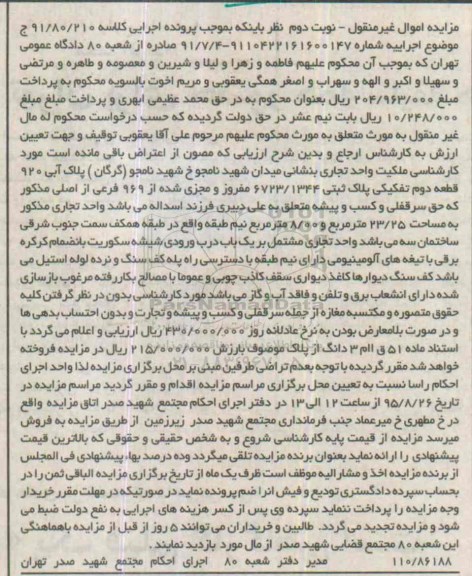 مزایده اموال غیرمنقول - نوبت دوم نظر باینکه بموجب پرونده اجرایی کلاسه ۹۱/۸۰/۲۱۰ ج
موضوع اجراییه شماره ۹۱۱۰۴۲۲۱۶۱۶۰۰۱۴۷-۹۱/۷/۴ صادره از شعبه ۸۰ دادگاه عمومی
تهران که بموجب آن محکوم علیهم فاطمه و زهرا و لیلا و شیرین و معصومه و طاهره و مرتضی
و سهیلا و اکبر و الهه و سهراب و اصغر همگی یعقوبی و مریم اخوت بالسویه محکوم به پرداخت
مبلغ ۲۰۴/۹۶۳/۰۰۰ ریال بعنوان محکوم به در حق محمد عظیمی ابهری و پرداخت مبلغ مبلغ
۱۰/۲۴۸/۰۰۰ ریال بابت نیم عشر در حق دولت گردیده که حسب درخواست محکوم له مال
غیر منقول به مورث متعلق به مورث محکوم علیهم مرحوم علی آقا یعقوبی توقیف و جهت تعیین
ارزش به کارشناس ارجاع و بدین شرح ارزیابی که مصون از اعتراض باقی مانده است مورد
کارشناسی ملکیت واحد تجاری بنشانی میدان شهید نامجو خ شهید نامجو (گرگان) پلاک آبی ۹۲۰
قطعه دوم تفکیکی پلاک ثبتی ۶۷۲۳/۱۳۴۴ مفروز و مجزی شده از ۹۶۹ فرعی از اصلی مذکور
که حق سرقفلی و کسب و پیشه متعلق به علی دبیری فرزند اسداله می باشد واحد تجاری مذکور
به مساحت ۲۳/۲۵ مترمربع و ۸/۰۰ مترمربع نیم طبقه واقع در طبقه همکف سمت جنوب شرقی
ساختمان سه می باشد واحد تجاری مشتمل بر یک باب درب ورودی شیشه سکوریت بانضمام کرکره
برقی با تیغه های آلومینیومی دارای نیم طبقه با دسترسی راه پله کف سنگ و نرده لوله استیل می
باشد کف سنگ دیوارها کاغذ دیواری سقف کاذب چوبی و عموما با مصالح بکار رفته مرغوب بازسازی
شده دارای انشعاب برق و تلفن و فاقد آب و گاز می باشد مورد کارشناسی بدون در نظر گرفتن کلیه
حقوق متصوره و مکتسبه مغازه از جمله سرقفلی و کسب و پیشه و تجارت و بدون احتساب بدهی ها
و در صورت بلامعارض بودن به نرخ عادلانه روز ۴۳۰/۰۰۰/۰۰۰ ریال ارزیابی و اعلام می گردد با
استناد ماده ۵۱ ق اام ۳ دانگ از پلاک موصوف بارزش ۲۱۵/۰۰۰/۰۰۰ ریال در مزایده فروخته
خواهد شد مقرر گردیده با توجه بعدم تراضی طرفین مبنی بر محل برگزاری مزایده لذا واحد اجرای
احکام راسا نسبت به تعیین محل برگزاری مراسم مزایده اقدام و مقرر گردید مراسم مزایده در
تاریخ ۹۵/۸/۲۶ از ساعت ۱۲ الی ۱۳ در دفتر اجرای احکام مجتمع شهید صدر اتاق مزایده واقع
در خ مطهری خ میرعماد جنب فرمانداری مجتمع شهید صدر زیرزمین از طریق مزایده به فروش
میرسد مزایده از قیمت پایه کارشناسی شروع و به شخص حقیقی و حقوقی که بالاترین قیمت
پیشنهادی را ارائه نماید بعنوان برنده مزایده تلقی میگردد و ده درصد بهاء پیشنهادی فی المجلس
از برنده مزایده اخذ و مشارالیه موظف است ظرف یک ماه از تاریخ برگزاری مزایده الباقی ثمن را در
بحساب سپرده دادگستری تودیع و فیش انرا ضم پرونده نماید در صورتیکه در مهلت مقرر خریدار
وجه مزایده را پرداخت ننماید سپرده وی پس از کسر هزینه های اجرایی به نفع دولت ضبط می
شود و مزایده تجدید می گردد. طالبین و خریداران می توانند ۵ روز از قبل از مزایده باهماهنگی
این شعبه ۸۰ مجتمع قضایی شهید صدر از مال مورد بازدید نمایند.
۱۱۰/۸۶۱۸۸ مدیر دفتر شعبه ۸۰ اجرای احکام مجتمع شهید صدر تهران